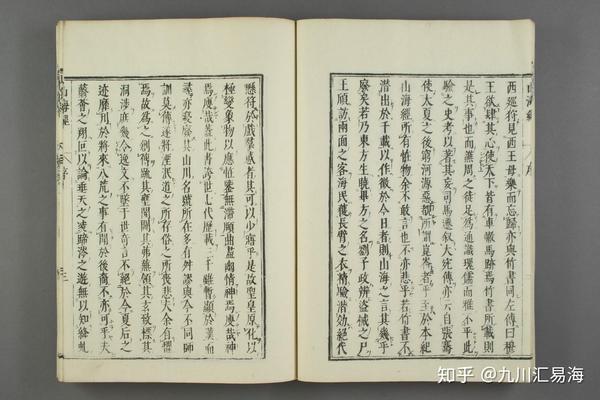 山海經 序
西廵狩見西王母樂而忘歸亦與竹書同左傳曰穆
王欲肆其心使天下皆有車轍馬跡焉竹書所載則
是其事也而譙周之徒足為通識瓌儒而雅不平此
驗之史考以著其妄司馬遷叙大宛傳亦云自張騫
使大夏之後窮河源惡覩所謂崑崙者乎至於本紀
山海經所有怪物余不敢言也不亦悲乎若竹書不
潛出於千載以作徵於今日者則山海之言其幾乎
廢矣若乃東方生曉畢方之名劉子政辨盜械之尸
王頎訪兩面之客海民獲長臂之衣精驗潛効絕代
懸符於戲羣惑者其可以少寤乎是故聖皇原化以
極變象物以應怪鑒無滯賾曲盡幽情神焉廋哉神
焉廋哉葢此書跨世七代歷載三千雖暫顯於漢而
尋亦寢廢其山川名號所在多有舛謬與今不同師
訓莫傳遂將湮泯道之所存俗之所喪悲夫余有懼
焉故為之創傳疏其壅閡闢其茀蕪領其玄致標其
洞涉庶幾令逸文不墜于世奇言不絕於今夏后之
跡靡刋於將來八荒之事有聞於後裔不亦可乎夫
蘙薈之翔叵以論垂天之凌蹄涔之遊無以知絳虬
山海經 序
知乎 @九川汇易海